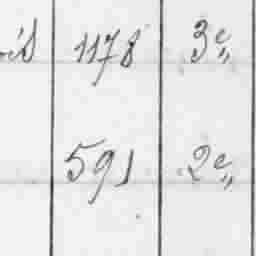 1178 3e„
591 2e„